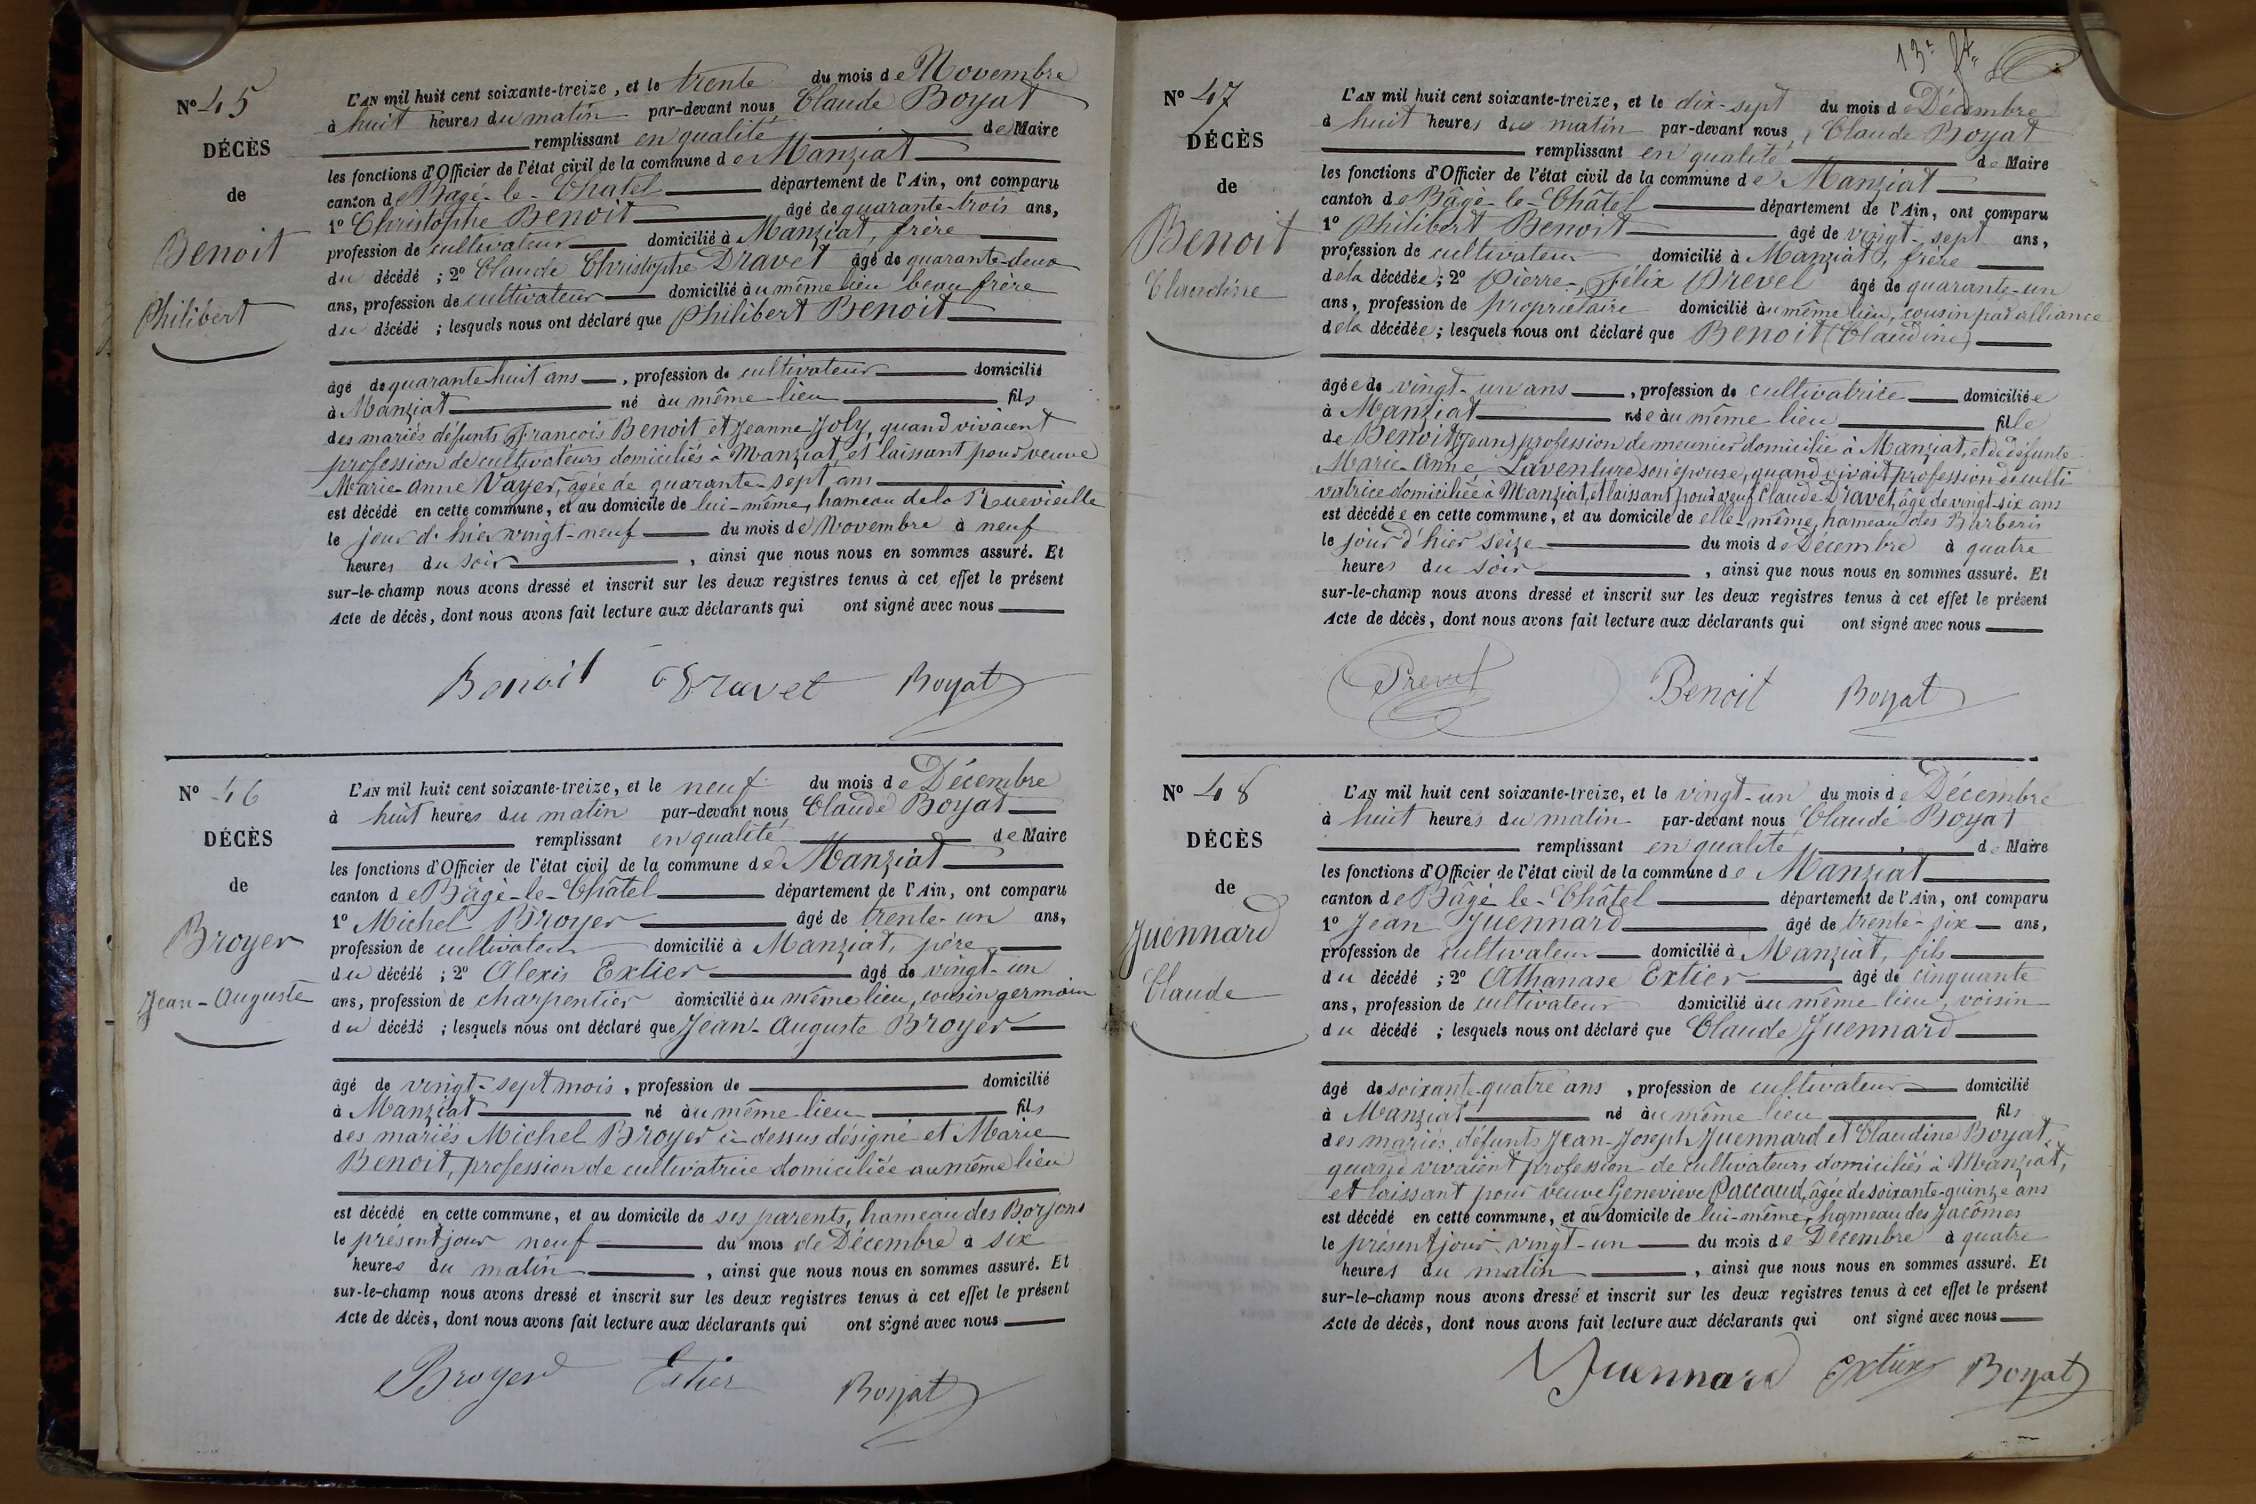 N° 45
DÉCÈS
de
Benoit
Philibert
L'AN mil huit cent soixante-treize, et le trente du mois de Novembre
à huit heures du matin par-devant nous Claude Boyat
remplissant en qualité de Maire
les fonctions d'Officier de l'état civil de la commune de Manziat
canton de Bâgé-le-Châtel département de l'Ain, ont comparu
1° Christophe Benoit âgé de quarante-trois ans,
profession de cultivateur domicilié à Manziat, frère
du décédé ; 2° Claude Christophe Dravet âgé de quarante-deux
ans, profession de cultivateur domicilié au même lieu beau frère
du décédé ; lesquels nous ont déclaré que Philibert Benoit
âgé de quarante huit ans, profession de cultivateur domicilié
à Manziat né au même lieu fils
des mariés défunts François Benoit et Jeanne Joly, quand vivaient
profession de cultivateurs domiciliés à Manziat, et laissant pour veuve
Marie-Anne Vayer, âgée de quarante-sept ans
est décédé en cette commune, et au domicile de lui-même, hameau de la Ruevieille
le jour d'hier vingt-neuf du mois de Novembre à neuf
heures du soir, ainsi que nous nous en sommes assuré. Et
sur-le-champ nous avons dressé et inscrit sur les deux registres tenus à cet effet le présent
Acte de décès, dont nous avons fait lecture aux déclarants qui ont signé avec nous
Benoit Dravet Boyat
N° 46
DÉCÈS
de
Broyer
Jean-Auguste
L'AN mil huit cent soixante-treize, et le neuf du mois de Décembre
à huit heures du matin par-devant nous Claude Boyat
remplissant en qualité de Maire
les fonctions d'Officier de l'état civil de la commune de Manziat
canton de Bâgé-le-Châtel département de l'Ain, ont comparu
1° Michel Broyer âgé de trente-un ans,
profession de cultivateur domicilié à Manziat, père
du décédé ; 2° Alexis Extier âgé de vingt-un
ans, profession de charpentier domicilié au même lieu, cousin germain
du décédé ; lesquels nous ont déclaré que Jean-Auguste Broyer
âgé de vingt-sept mois, profession de domicilié
à Manziat né au même lieu fils
des mariés Michel Broyer ci-dessus désigné et Marie
Benoit, profession de cultivatrice domiciliée au même lieu
est décédé en cette commune, et au domicile de ses parents, hameau des Borjons
le présent jour neuf du mois de Décembre à six
heures du matin, ainsi que nous nous en sommes assuré. Et
sur-le-champ nous avons dressé et inscrit sur les deux registres tenus à cet effet le présent
Acte de décès, dont nous avons fait lecture aux déclarants qui ont signé avec nous
Broyer Extier Boyat
13e
N° 47
DÉCÈS
de
Benoit
Claudine
L'AN mil huit cent soixante-treize, et le dix-sept du mois de Décembre
à huit heures du matin par-devant nous Claude Boyat
remplissant en qualité de Maire
les fonctions d'Officier de l'état civil de la commune de Manziat
canton de Bâgé-le-Châtel département de l'Ain, ont comparu
1° Philibert Benoit âgé de vingt-sept ans,
profession de cultivateur domicilié à Manziat, frère
de la décédée ; 2° Pierre-Félix Prevel âgé de quarante-un
ans, profession de propriétaire domicilié au même lieu, cousin par alliance
de la décédée ; lesquels nous ont déclaré que Benoit (Claudine)
âgée de vingt-un ans, profession de cultivatrice domiciliée
à Manziat née au même lieu fille
de Benoit (Jean) profession de meunier domicilié à Manziat, et de défunte
Marie-Anne Laventure son épouse, quand vivait profession de culti
vatrice domiciliée à Manziat, et laissant pour veuf Claude Dravet, âgé de vingt-six ans
est décédée en cette commune, et au domicile de elle-même, hameau des Barberis
le jour d'hier seize du mois de Décembre à quatre
heures du soir, ainsi que nous nous en sommes assuré. Et
sur-le-champ nous avons dressé et inscrit sur les deux registres tenus à cet effet le présent
Acte de décès, dont nous avons fait lecture aux déclarants qui ont signé avec nous
Prevel Benoit Boyat
N° 48
DÉCÈS
de
Juennard
Claude
L'AN mil huit cent soixante-treize, et le vingt-un du mois de Décembre
à huit heures du matin par-devant nous Claude Boyat
remplissant en qualité de Maire
les fonctions d'Officier de l'état civil de la commune de Manziat
canton de Bâgé-le-Châtel département de l'Ain, ont comparu
1° Jean Juennard âgé de trente-six ans,
profession de cultivateur domicilié à Manziat, fils
du décédé ; 2° Athanase Extier âgé de cinquante
ans, profession de cultivateur domicilié au même lieu, voisin
du décédé ; lesquels nous ont déclaré que Claude Juennard
âgé de soixante-quatre ans, profession de cultivateur domicilié
à Manziat né au même lieu fils
des mariés défunts Jean-Joseph Juennard et Claudine Boyat,
quand vivaient profession de cultivateurs domiciliés à Manziat,
et laissant pour veuve Geneviève Paccaud, âgée de soixante-quinze ans
est décédé en cette commune, et au domicile de lui-même, hameau des Jacômes
le présent jour vingt-un du mois de Décembre à quatre
heures du matin, ainsi que nous nous en sommes assuré. Et
sur-le-champ nous avons dressé et inscrit sur les deux registres tenus à cet effet le présent
Acte de décès, dont nous avons fait lecture aux déclarants qui ont signé avec nous
Juennard Extier Boyat